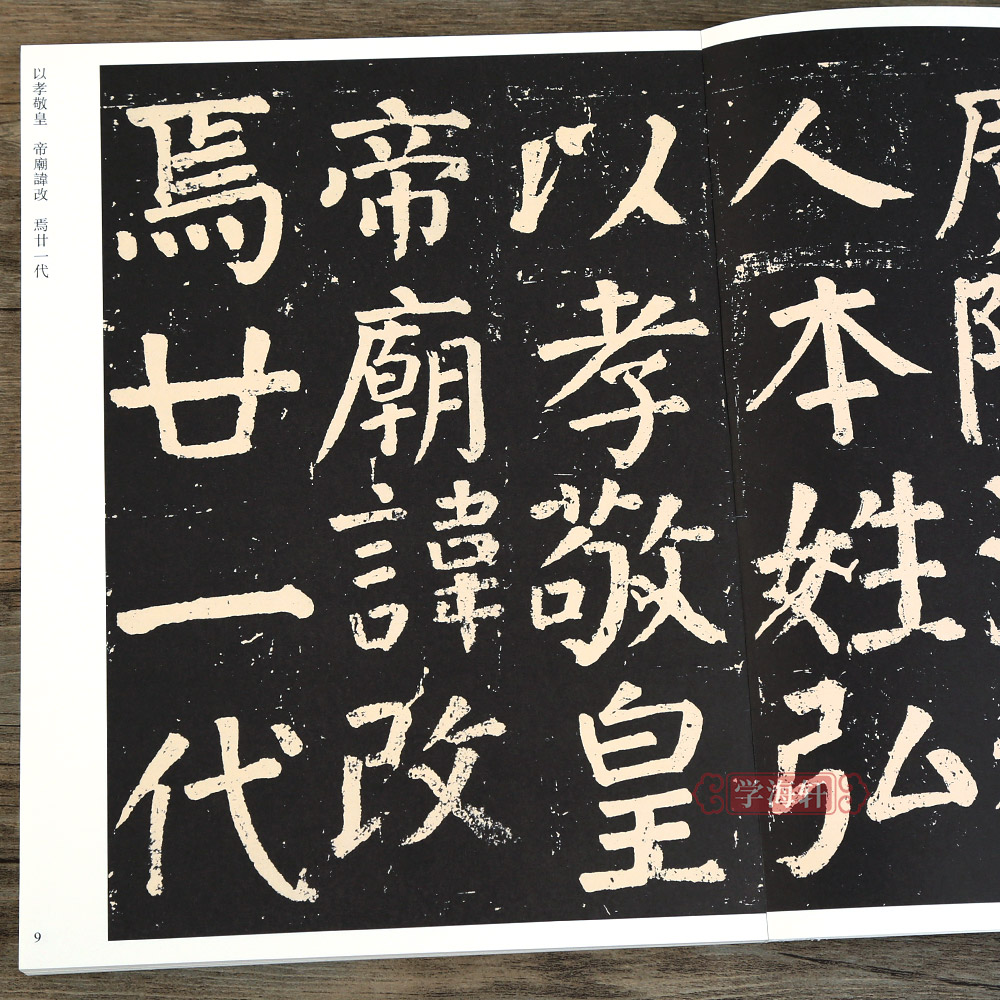 人本姓弘
以孝敬皇
帝廟諱改
焉廿一代
以孝敬皇 帝廟諱改 焉廿一代
9
学海轩